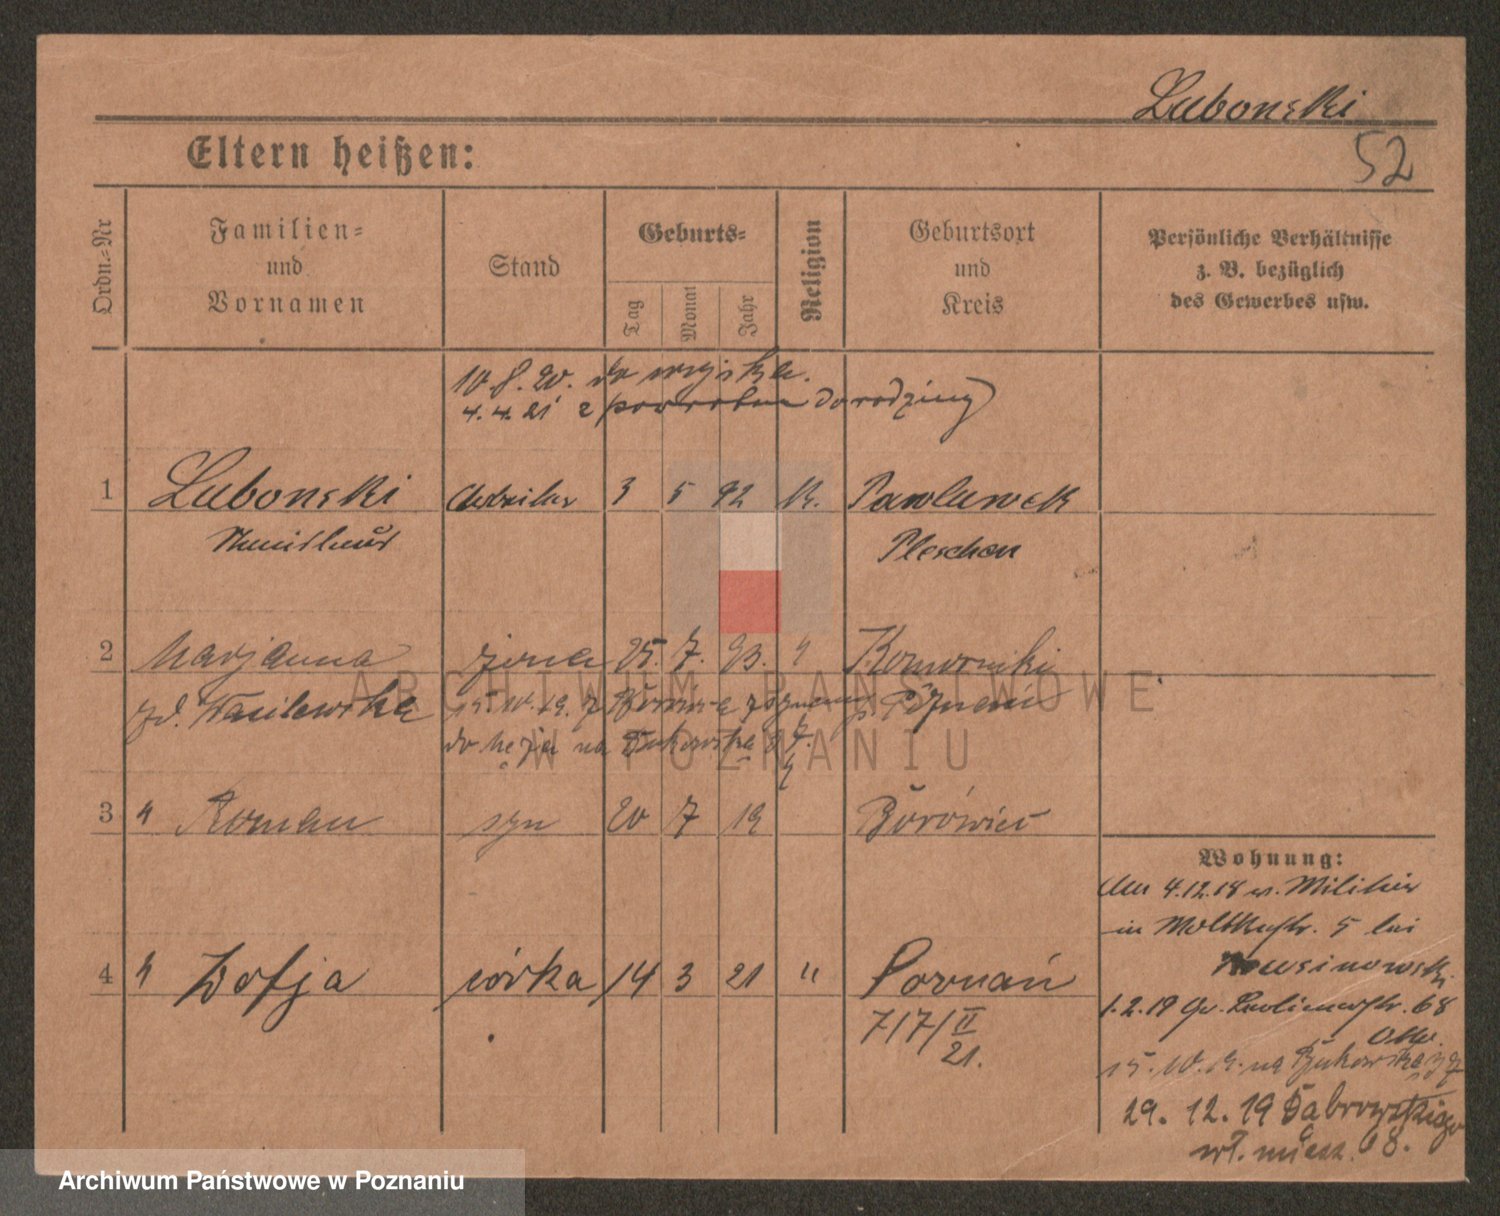 Lubonski
52
Eltern heißen:
Ordn.=Nr
Familien=
und
Vornamen
Stand
Geburts=
Tag
Monat
Jahr
Religion
Geburtsort
und
Kreis
Persönliche Verhältnisse
z. B. bezüglich
des Gewerbes usw.
10.8.20. do wojska.
4.4.21 z powrotem do rodziny
1 Lubonski Arbeiter 3 5 92 k. Pawlowek
Stanislaus Pleschen
2 Marjanna żona 25. 7. 93. " Komorniki
zd. Wasilewska 15.10.19. z
do męża na Bukowska
ARCHIWUM PAŃSTWOWE
W POZNANIU
3 " Roman syn 20 7 19 Borówiec
Wohnung:
4.12.18 v. Militär
in Moltkestr. 5 bei
4 " Zofja córka 14 3 21 " Poznań
717/II
21.
1.2.19 68
Otto.
15.10.19. na Bukowska
29.12.19 Dąbrowskiego
wł. miesz. 68.
Archiwum Państwowe w Poznaniu